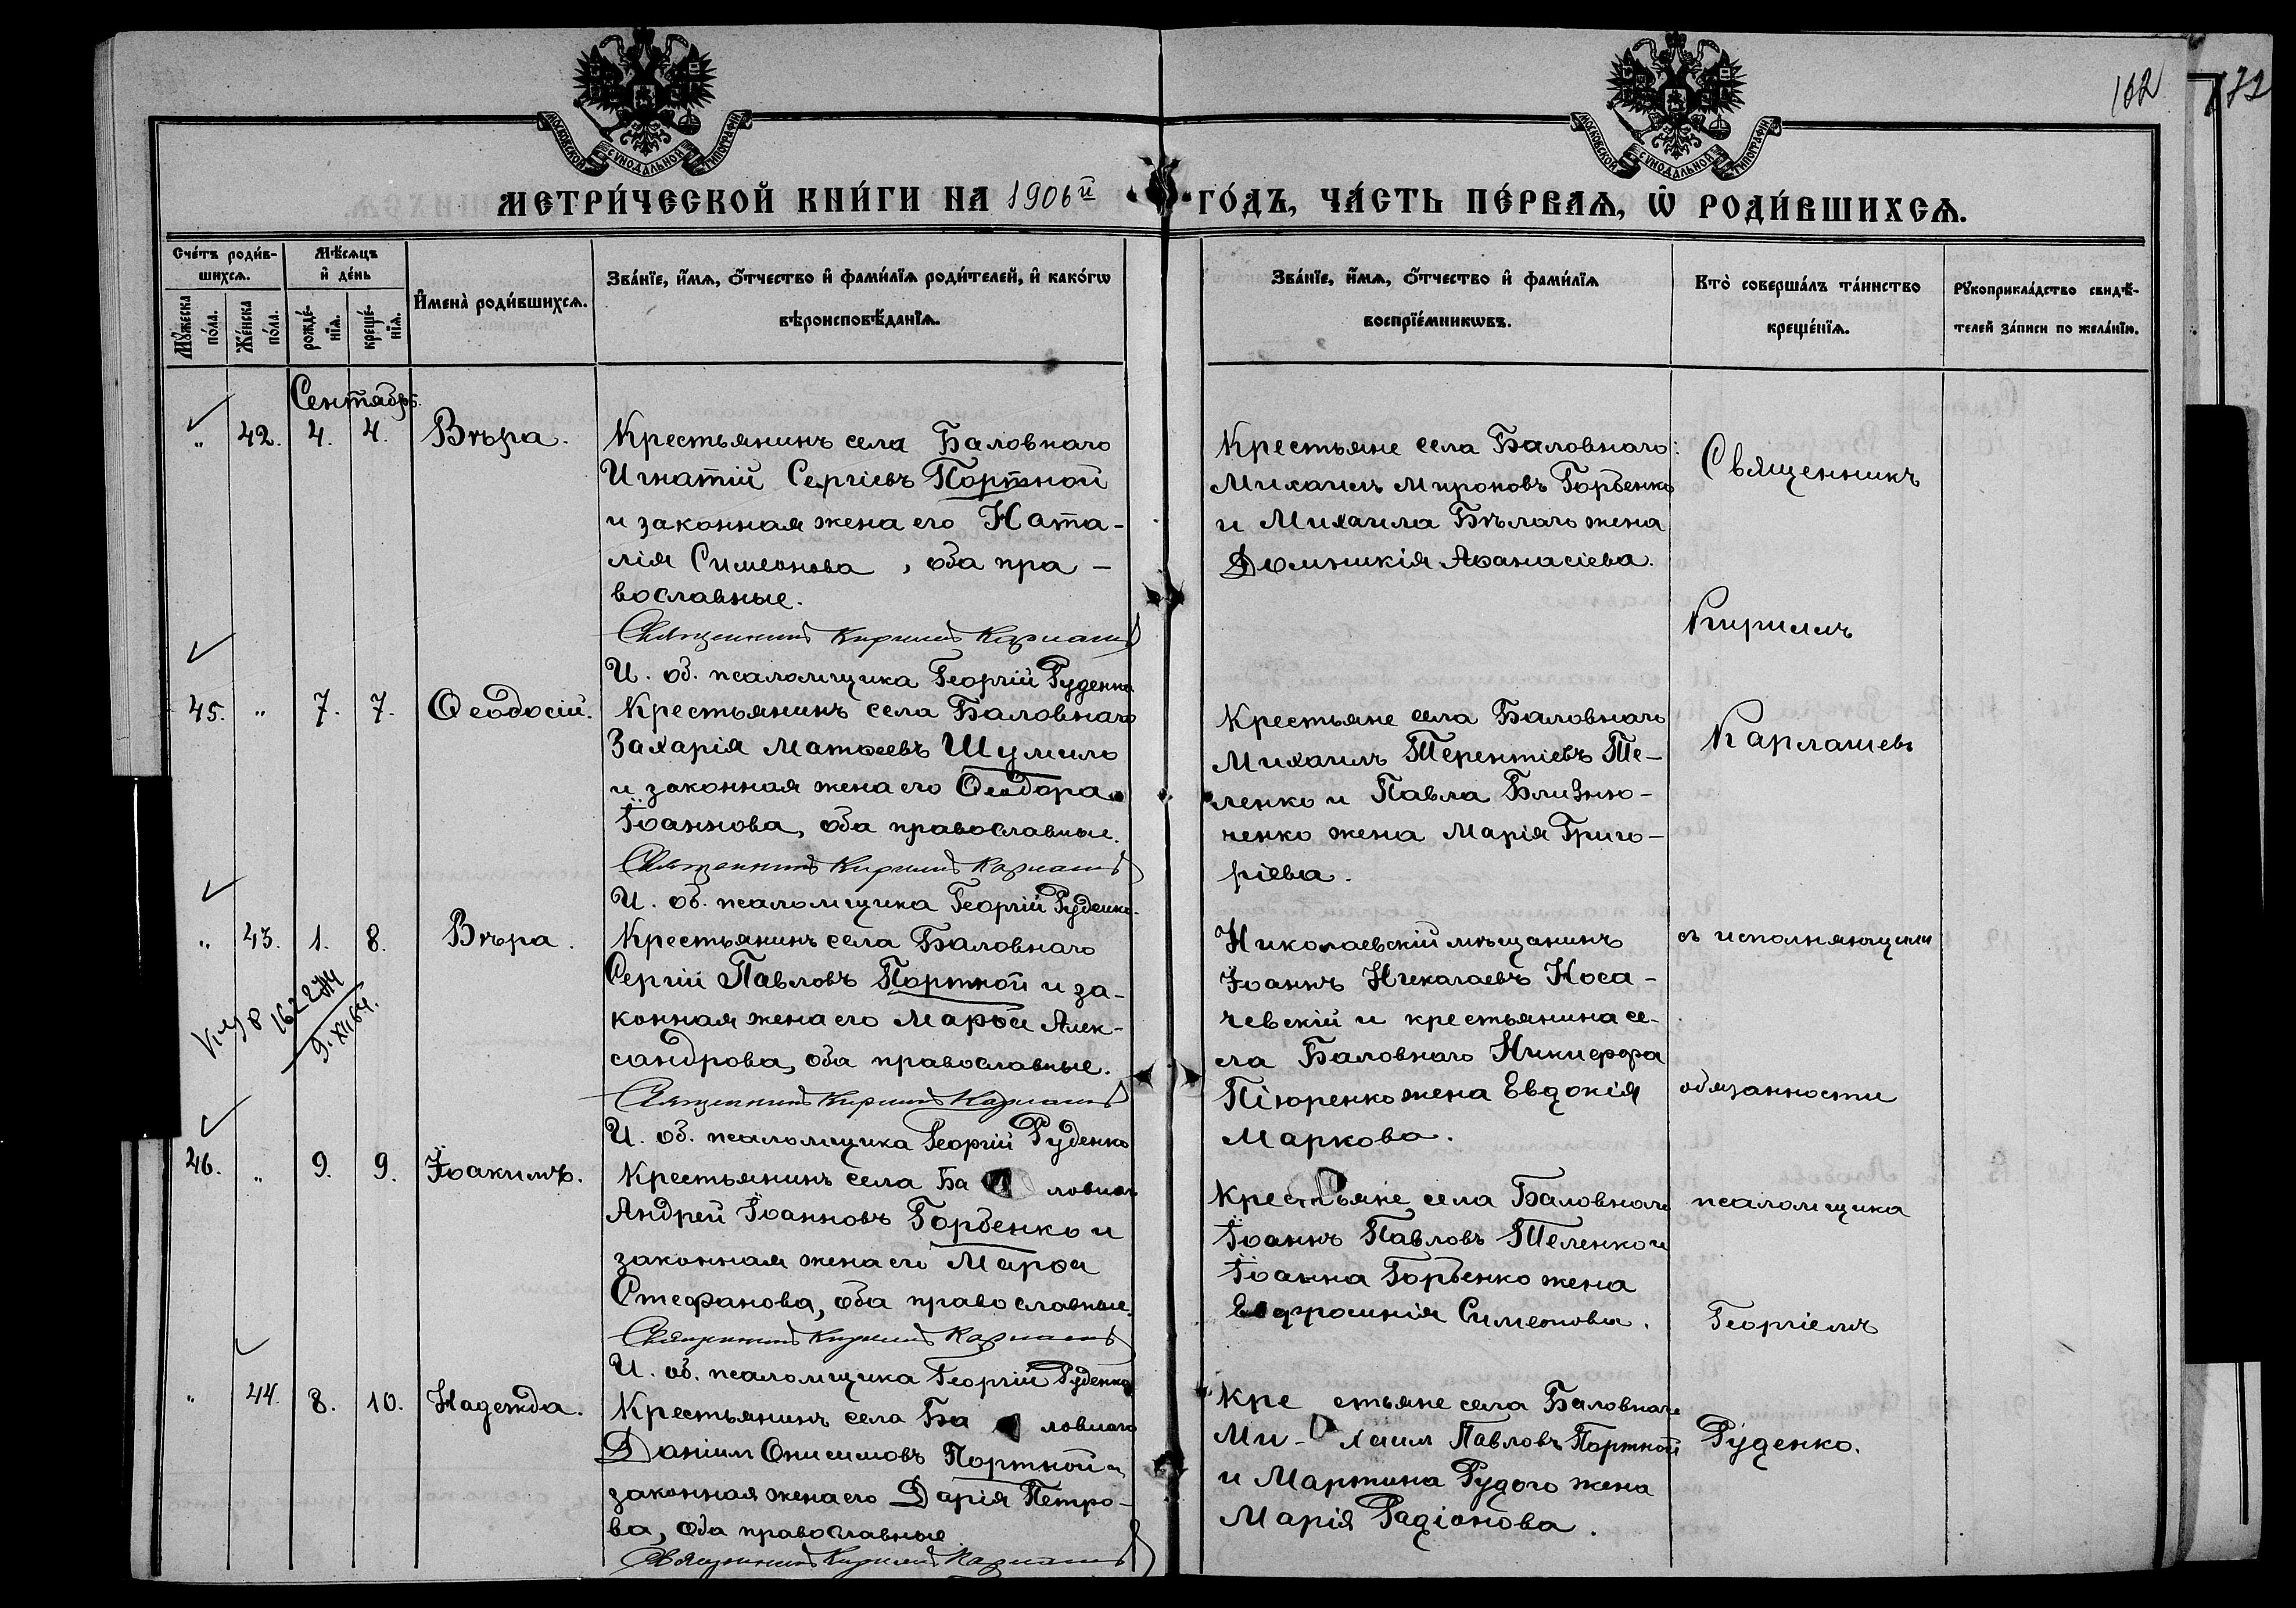 МОСКОВСКОЙ СѴНОДАЛЬНОЙ ТИПОГРАФІИ
МОСКОВСКОЙ СѴНОДАЛЬНОЙ ТИПОГРАФІИ
162
МЕТРИ́ЧЕСКОЙ КНИ́ГИ НА 1906й
ГО́ДЪ, ЧА́СТЬ ПЕ́РВАѦ, Ѽ РОДИ́ВШИХСѦ.
Сче́тъ роди́в-
шихсѧ.
Мꙋ́жеска
по́ла.
Же́нска
по́ла.
Мѣ́сѧцъ
и҆ де́нь
рожде́-
нїѧ.
креще́-
нїѧ.
И҆мена̀ роди́вшихсѧ.
Зва́нїе, и҆́мѧ, ѻ҆́тчество и҆ фами́лїѧ роди́телей, и҆ како́гѡ
вѣроисповѣ́данїѧ.
Зва́нїе, и҆́мѧ, ѻ҆́тчество и҆ фами́лїѧ
воспрїе́мникѡвъ.
Кто̀ соверша́лъ та́инство
креще́нїѧ.
Рꙋкоприкла́дство свидѣ́-
телей за́писи по жела́нїю.
Сентябрь.
„ 42. 4. 4. Вѣра.
Крестьянинъ села Баловнаго
Игнатій Сергіевъ Портной
и законная жена его Ната-
лія Симеонова, оба пра-
вославные.
Священникъ Кириллъ Карпашевъ
И. об. псаломщика Георгій Руденко
Крестьяне села Баловнаго:
Михаилъ Мироновъ Горбенко
и Михаила Бѣлаго жена
Домникія Аѳанасіева.
45. „ 7. 7. Ѳеодосій.
Крестьянинъ села Баловнаго
Захарія Матѳеевъ Шумило
и законная жена его Ѳеодора
Іоаннова, оба православные.
Священникъ Кириллъ Карпашевъ
И. об. псаломщика Георгій Руденко.
Крестьяне села Баловнаго
Михаилъ Терентіевъ Те-
ленко и Павла Близню-
ченко жена Марія Григо-
ріева.
„ 43. 1. 8. Вѣра.
162274
9.XII 64.
Крестьянинъ села Баловнаго
Сергій Павловъ Портной и за-
конная жена его Марѳа Алек-
сандрова, оба православные.
Священникъ Кириллъ Карпашевъ
И. об. псаломщика Георгій Руденко
Николаевскій мѣщанинъ
Іоаннъ Николаевъ Носа-
чевскій и крестьянина се-
ла Баловнаго Никифора
Піюренко жена Евдокія
Маркова.
46. „ 9. 9. Іоакимъ.
Крестьянинъ села Ба ловнаго
Андрей Іоанновъ Горбенко и
законная жена его Марѳа
Стефанова, оба православные.
Священникъ Кириллъ Карпашевъ
И. об. псаломщика Георгій Руденко
Крестьяне села Баловнаго
Іоаннъ Павловъ Теленко и
Іоанна Горбенко жена
Евфросинія Симеонова.
„ 44. 8. 10. Надежда.
Крестьянинъ села Ба ловнаго
Даніилъ Онисимовъ Портной и
законная жена его Дарія Петро-
ва, оба православные
Священникъ Кириллъ Карпашевъ
Кре стьяне села Баловнаго
Ми- хаилъ Павловъ Портной
и Мартина Рудого жена
Марія Радіонова.
Священникъ
Кириллъ
Карпашевъ
съ исполняющимъ
обязанности
псаломщика
Георгіемъ
Руденко.